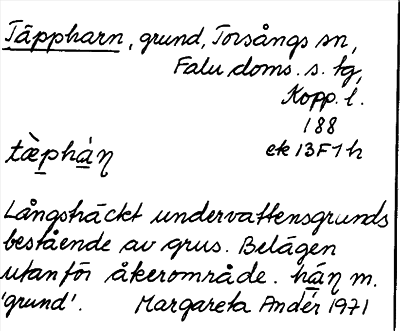 Täppharn, grund, Torsångs sn,
Falu doms. s. tg,
Kopp. l.
188
ek 13F1h
tæ̀pháṇ
Långsträckt undervattensgrund
bestående av grus. Belägen
utanför åkerområde. háṇ m.
'grund'. Margareta Andér 1971